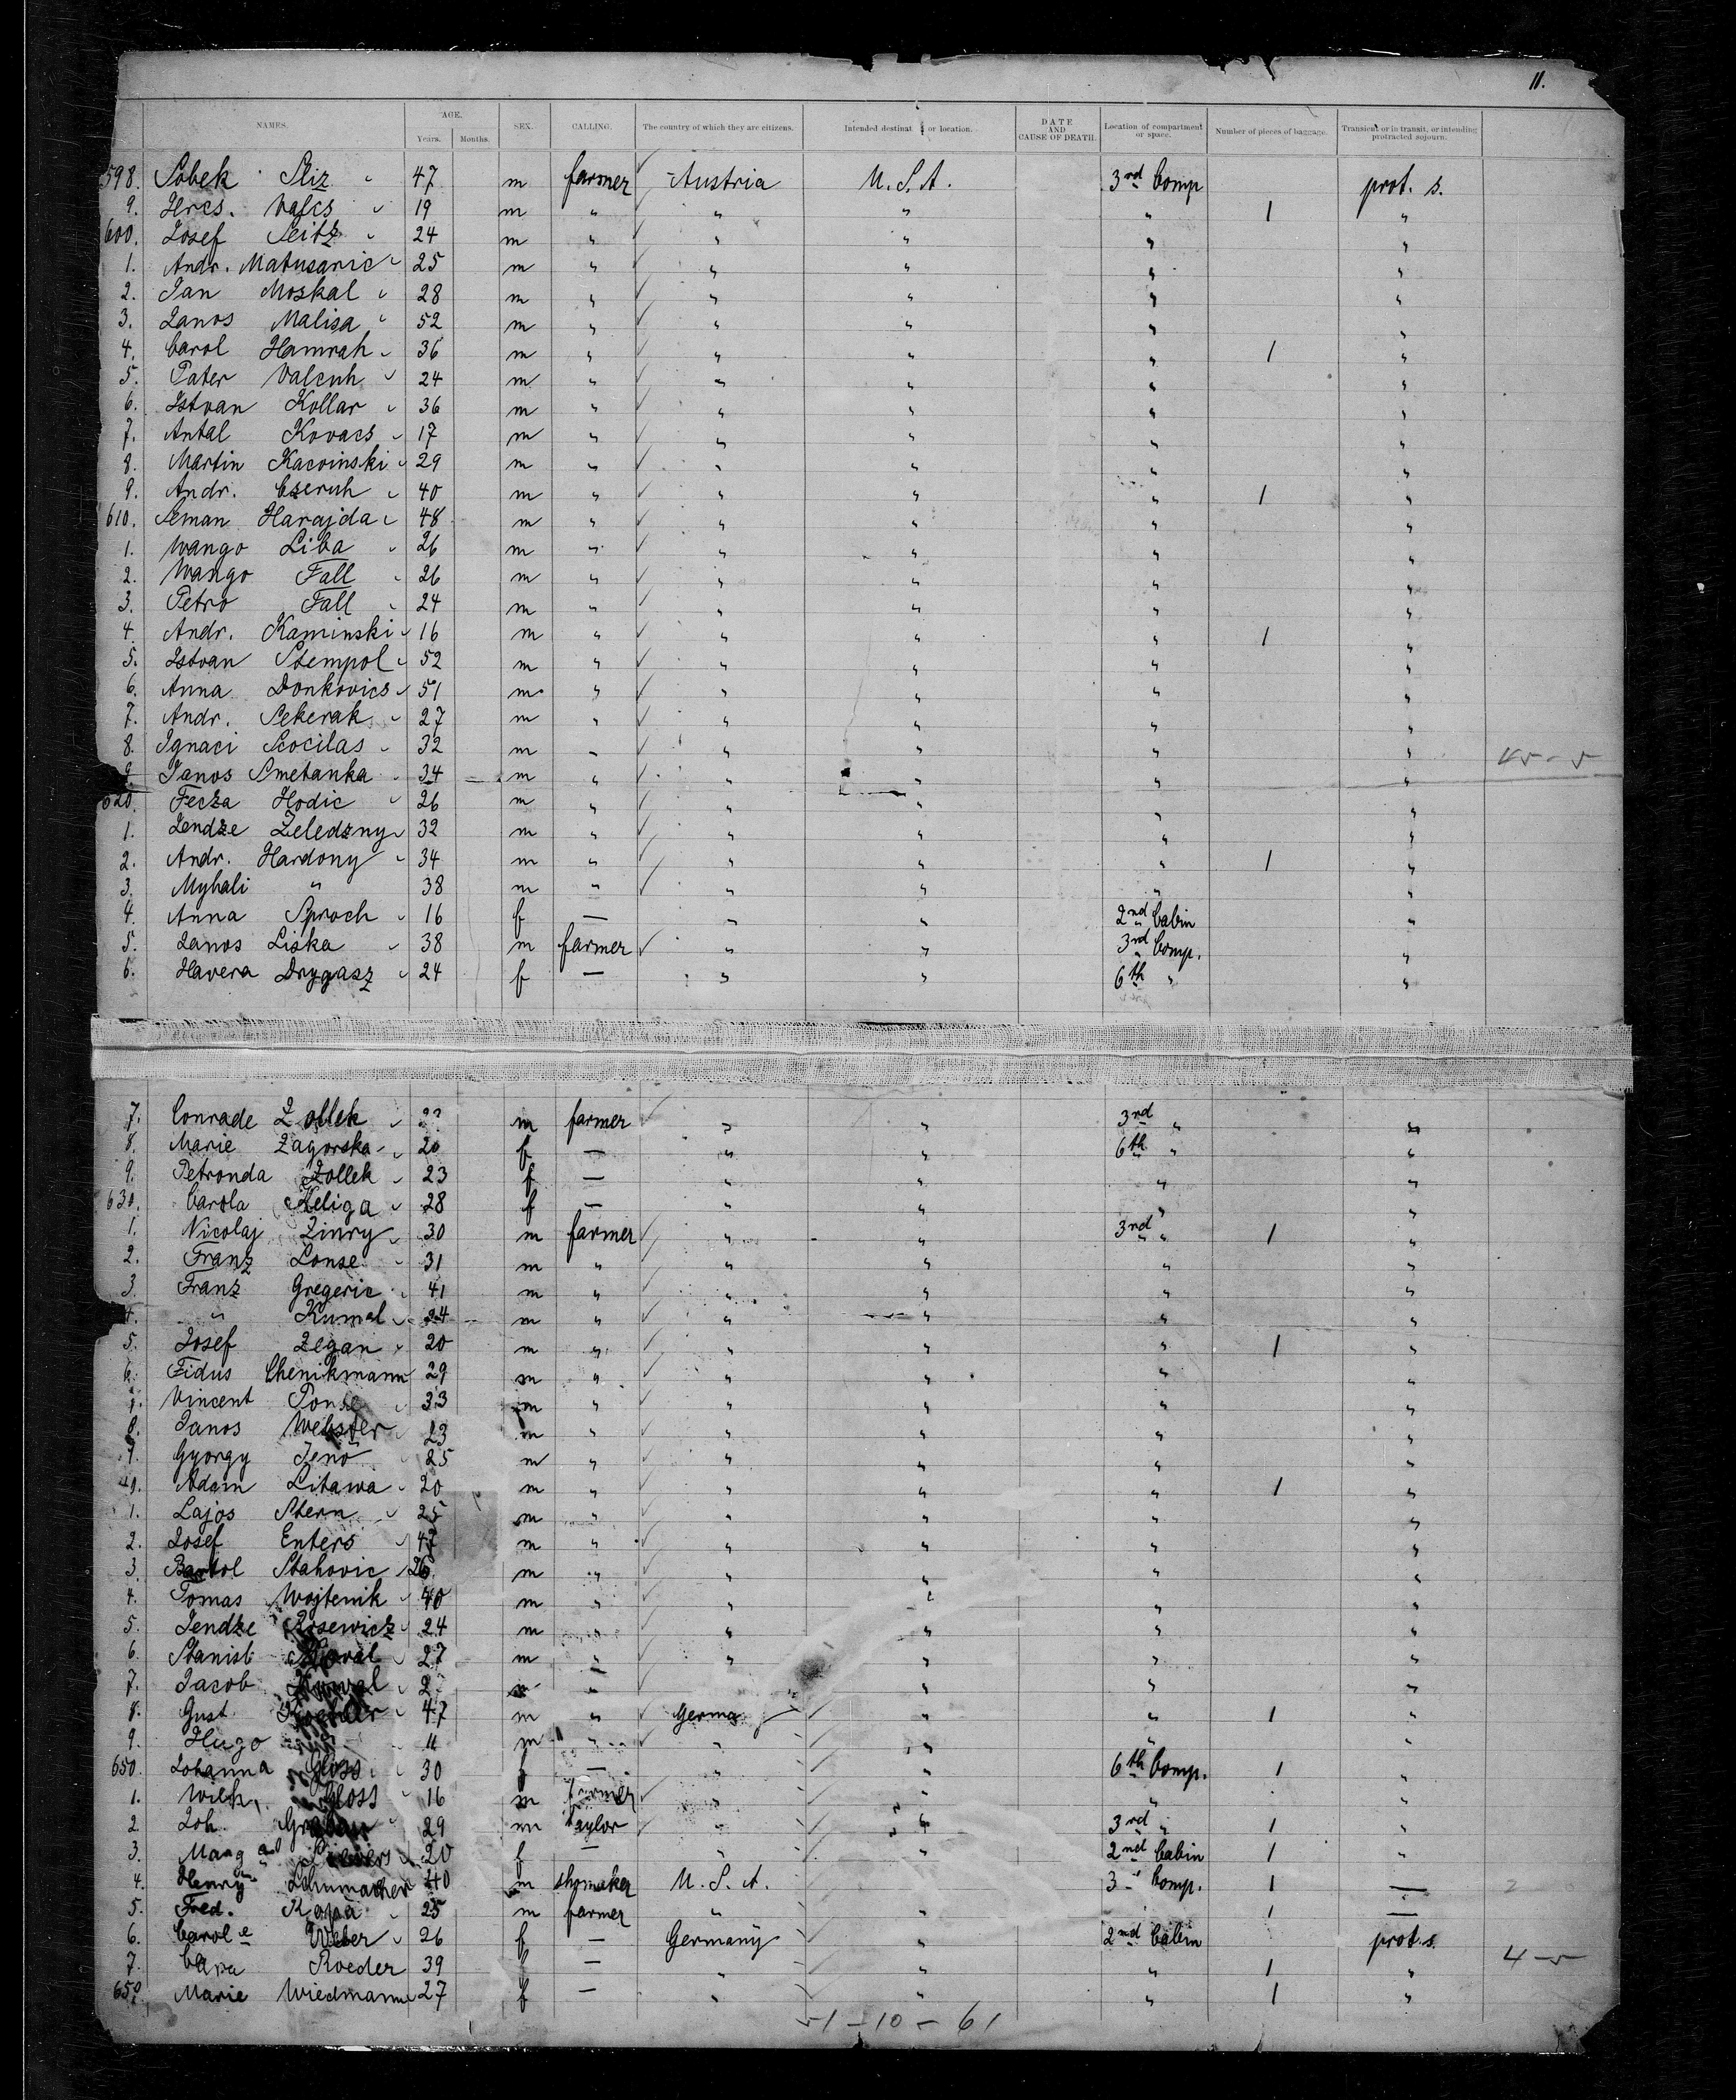 11.
NAMES. AGE. Years. Months. SEX. CALLING. The country of which they are citizens. Intended destinat or location. DATE AND CAUSE OF DEATH. Location of compartment or space. Number of pieces of baggage. Transient or in transit, or intending protracted sojourn.
598. Sobek Sliz 47 m farmer Austria U.S.A. 3rd Comp prot. s.
9. 19 m " " " " 1 "
600. Josef Seitz 24 m " " " " "
1. Andr. Matusanic 25 m " " " " "
2. Jan Moskal 28 m " " " " "
3. Janos Malisa 52 m " " " " "
4. Carol Hamrah 36 m " " " " 1 "
5. Pater Valcuh 24 m " " " " "
6. Istvan Kollar 36 m " " " " "
7. Antal Kovacs 17 m " " " " "
8. Martin Kacvinski 29 m " " " " "
9. Andr. Czeruh 40 m " " " " 1 "
610. Seman Harajda 48 m " " " " "
1. Wango Liba 26 m " " " " "
2. Wango Fall 26 m " " " " "
3. Petro Fall 24 m " " " " "
4. Andr. Kaminski 16 m " " " " 1 "
5. Istvan Stempol 52 m " " " " "
6. Anna Donkovics 51 m " " " " "
7. Andr. Sekerak 27 m " " " " "
8. Ignaci Scocilas 32 m " " " " "
9. Janos Smetanka 34 m " " " " "
620. Fecza Hodic 26 m " " " " "
1. Jendze Zeledzny 32 m " " " " "
2. Andr. Hardony 34 m " " " " 1 "
3. Myhali " 38 m " " " " "
4. Anna Sproch 16 f — " " 2nd Cabin "
5. Janos Liska 38 m farmer " " 3rd Comp. "
6. Havera Drygasz 24 f — " " 6th " "
7. Conrade Zollek m farmer " " 3rd " "
8. Marie Zagorska 20 f — " " 6th " "
9. Petronda Zollek 23 f — " " " "
630. Carola Keliga 28 f — " " " "
1. Nicolaj Zinry 30 m farmer " " 3rd " 1 "
2. Franz Lonse 31 m " " " " "
3. Franz Gregeric 41 m " " " " "
4. " Kumel 24 m " " " " "
5. Josef Zegan 20 m " " " " 1 "
6. Fidus Chenikmann 29 m " " " " "
7. Vincent Ponse 33 m " " " " "
8. Janos Webster 23 m " " " " "
9. Gyorgy Jenö 25 m " " " " "
40. Adam Litawa 20 m " " " " 1 "
1. Lajos Stern 25 m " " " " "
2. Josef Enters m " " " " "
3. Bartol Stahovic 26 m " " " " "
4. Tomas Wojtenik 40 m " " " " "
5. Jendze Rosewicz 24 m " " " " "
6. Stanisl 27 m " " " " "
7. Jacob m " " " "
8. Gust. 47 m " Germa " " 1 "
9. Hugo 11 m " " " " "
650. Johanna Gloss 30 f — " " 6th Comp. 1 "
1. Wilh. Gloss 16 m farmer " " " "
2. Joh. 29 m taylor " " 3rd " 1 "
3. 20 f — " " 2nd Cabin 1 "
4. Henry Schumacher 40 m shomaker U.S.A. 3 Comp. 1 —
5. Fred. 25 m farmer " " 1 —
6. Carol e Weber 26 f — Germany " 2nd Cabin prot. s.
7. Roeder 39 f — " " " 1 "
658. Marie Wiedmann 27 f — " " " 1 "